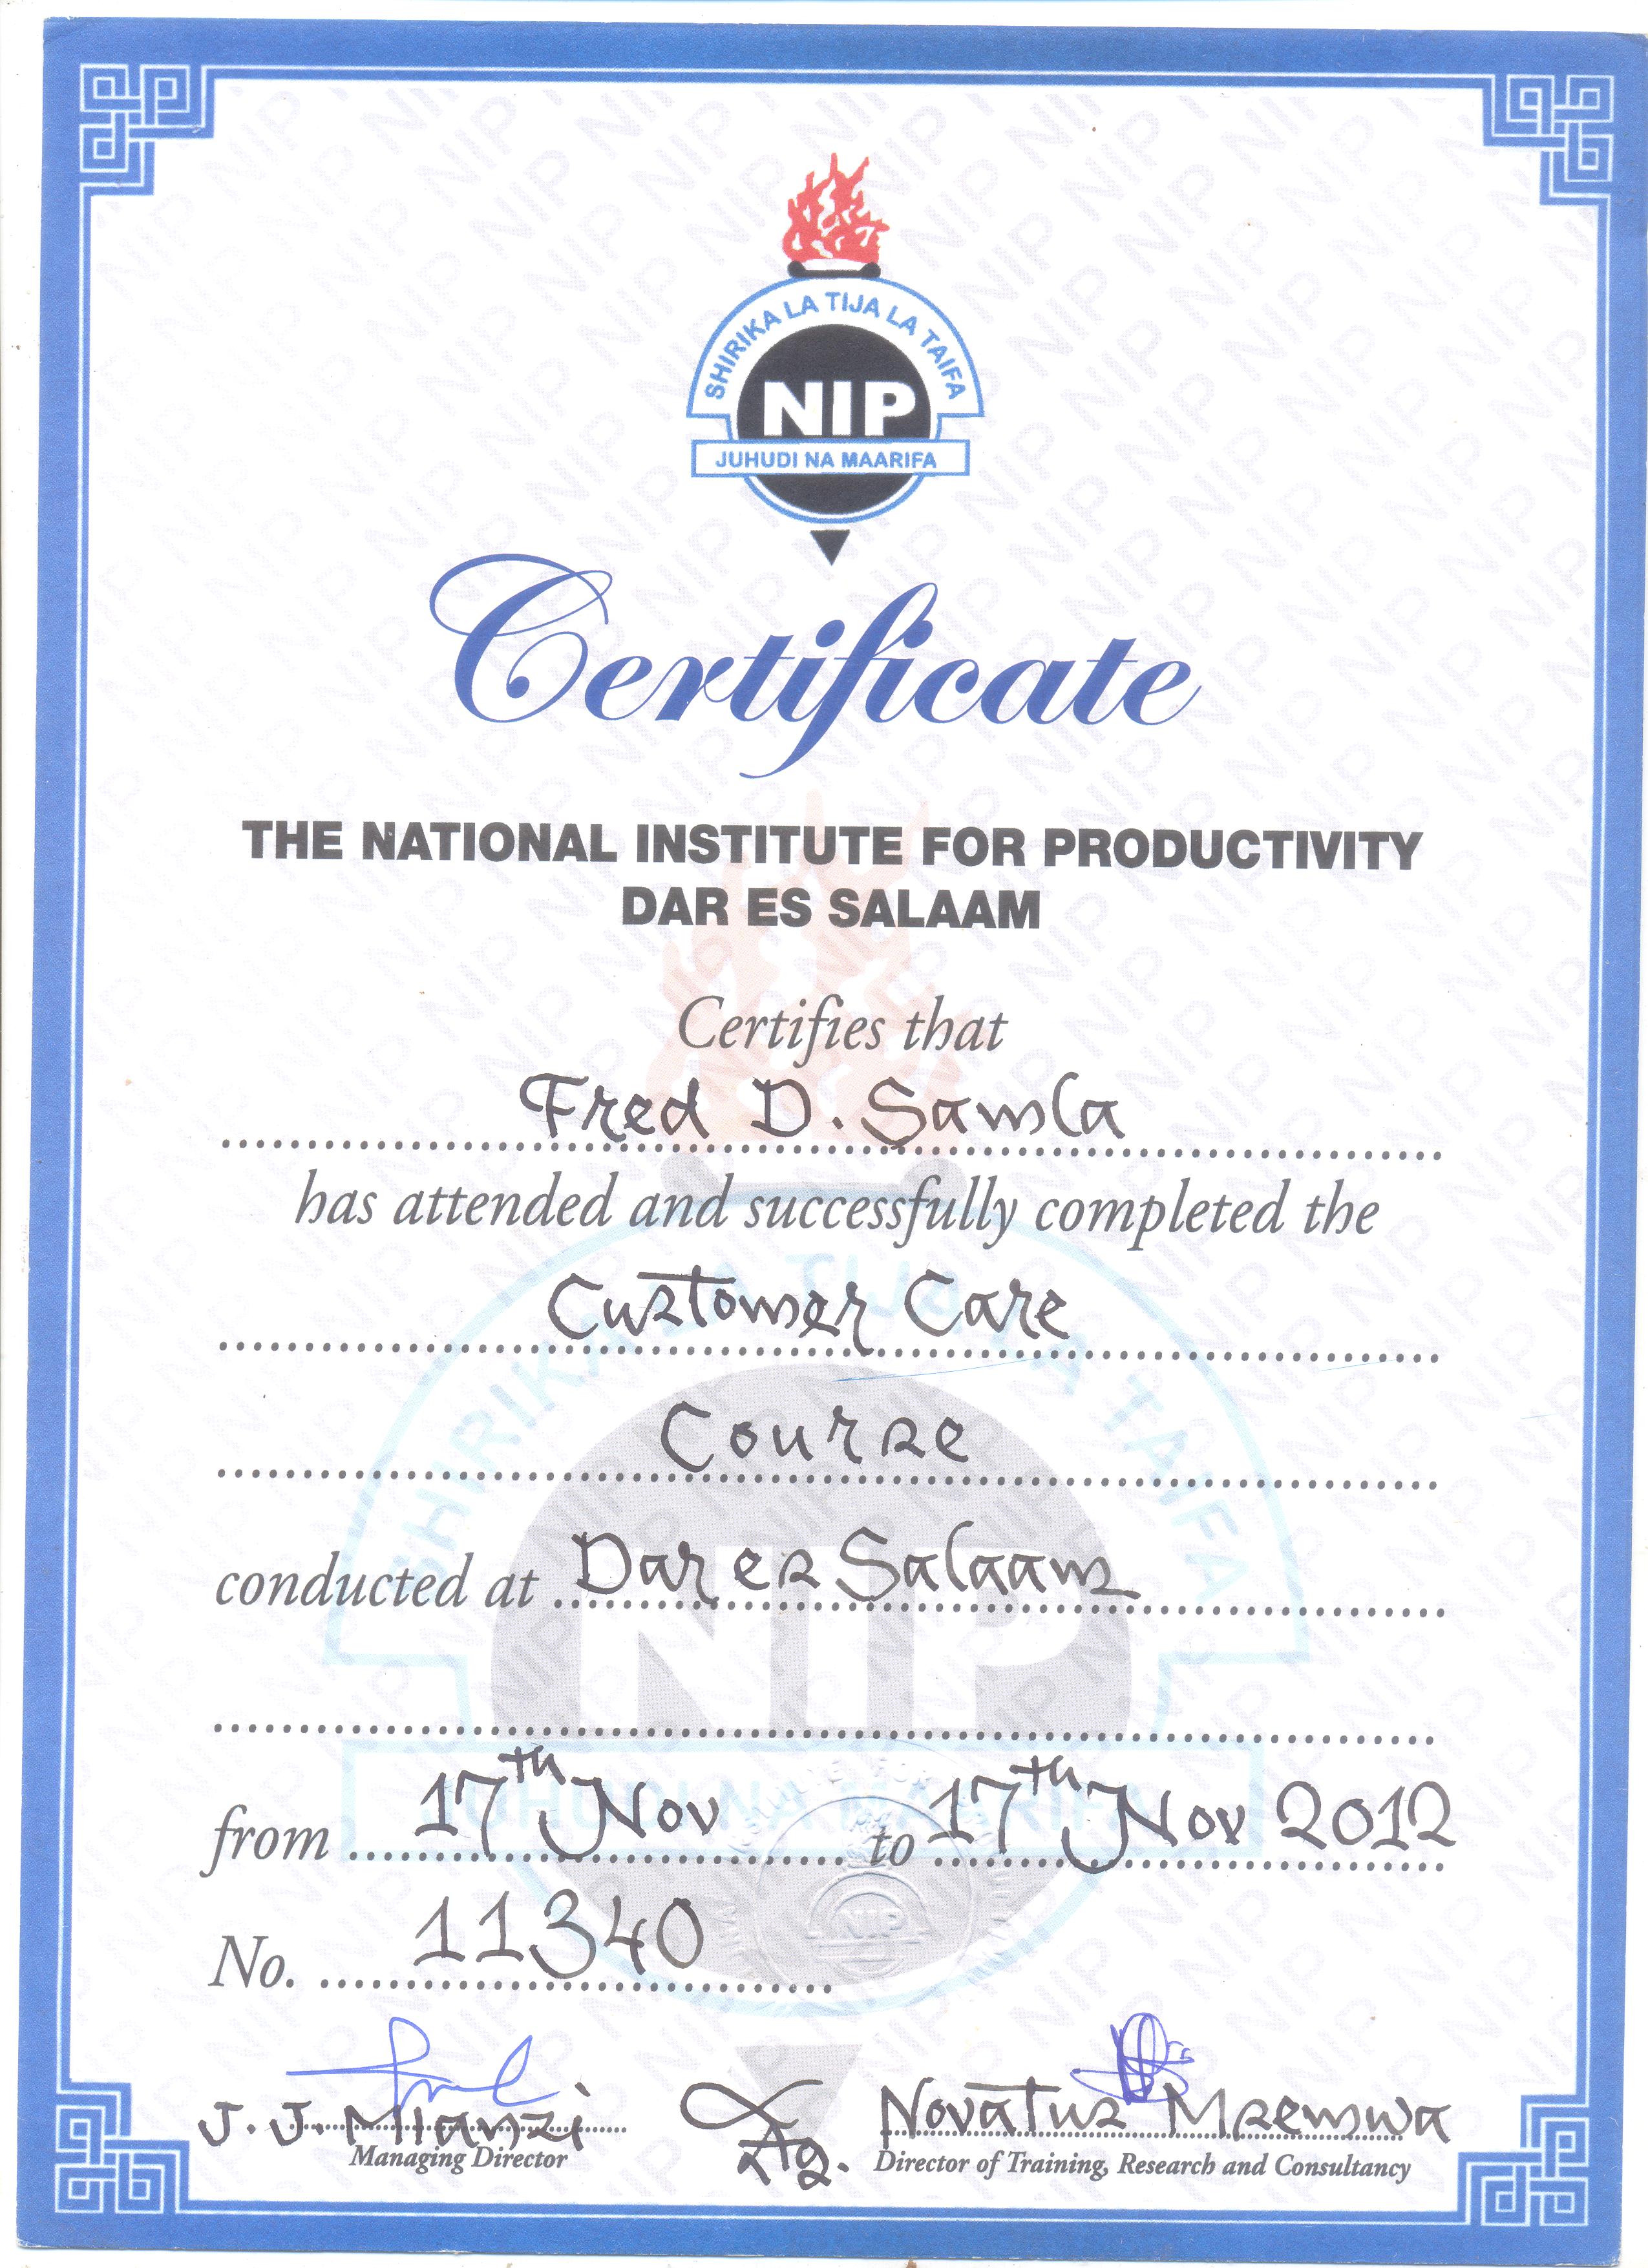 SHIRIKA LA TIJA LA TAIFA
NIP
JUHUDI NA MAARIFA
Certificate
THE NATIONAL INSTITUTE FOR PRODUCTIVITY
DAR ES SALAAM
Certifies that
Fred D. Samla
has attended and successfully completed the
Customer Care
Course
conducted at Dar es Salaam
from 17th Nov to 17th Nov 2012
No. 11340
J. J. Mlanzi Novatus Msemwa
Managing Director Ag. Director of Training, Research and Consultancy